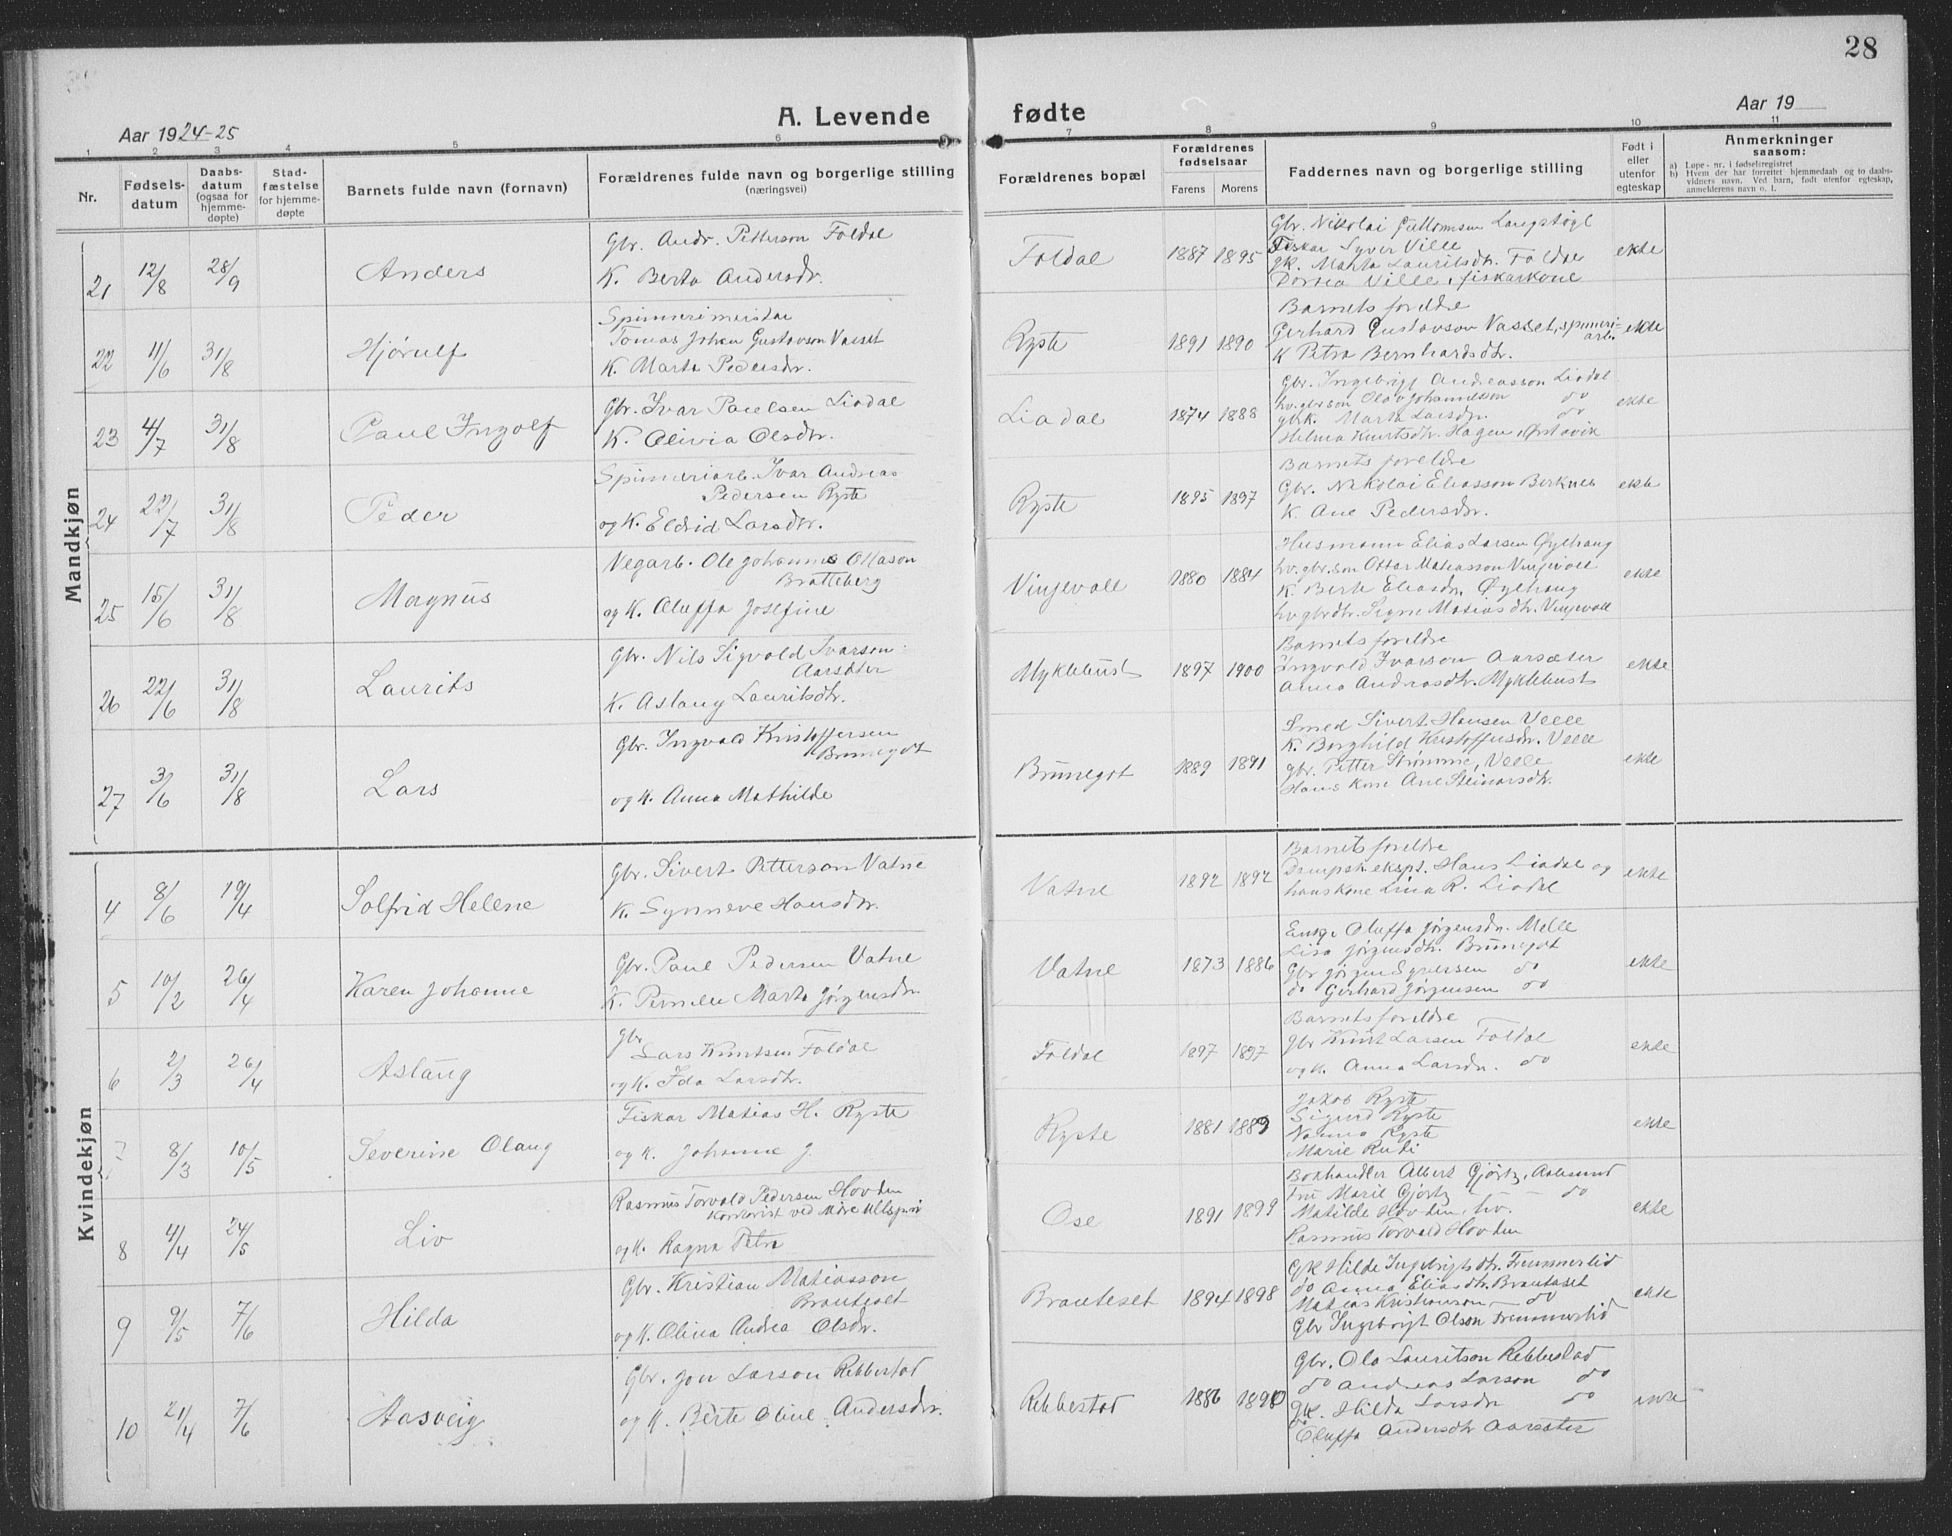 28
A. Levende fødte
Aar 1924-25
Aar 19
1 2 3 4 5 6 7 8 9 10 11
Nr.
Fødsels-datum
Daabs-datum (ogsaa for hjemme-døpte)
Stad-fæstelse for hjemme-døpte
Barnets fulde navn (fornavn)
Forældrenes fulde navn og borgerlige stilling (næringsvei)
Forældrenes bopæl
Forældrenes fødselsaar
Farens Morens
Faddernes navn og borgerlige stilling
Født i eller utenfor egteskap
Anmerkninger saasom:
a) Løpe-nr. i fødselsregistret
b) Hvem der har forrettet hjemmedaab og to daabsvidners navn. Ved barn, født utenfor egteskap, anmelderens navn o. l.
Mandkjøn
21 12/8 28/9 Anders
Gbr. Andr. Petterson Foldal
K. Berta Andersdr.
Foldal 1887 1895
Gbr. Nikolai Guttormsen Langstøyl
Fiskar Syver Ville
gk. Marta Lauritsdtr. Foldse
Dortea Ville, fiskarkone
ekte
22 11/6 31/8 Hjørulf
Spinnerimeistar
Tomas Johan Gustavson Vasset
K. Marta Pedersdr.
Ryste 1891 1890
Barnets foreldre
Gerhard Gustavson Vasset, spinneri-arb.
K Petra Bernhardsdtr.
ekte
23 4/7 31/8 Paul Ingolf
Gbr. Ivar Paulsen Liadal
K. Olivia Olsdtr.
Liadal 1874 1888
Gbr. Ingebrigt Andreasson Liadal
hv. gbrson Olav Johannesson do
gbrk. Marta Larsdtr. do
Helma Knutsdtr. Hagen, Ørstavik
ekte
24 22/7 31/8 Peder
Spinneriarb. Ivar Andreas
Pedersen Ryste
og K. Eldrid Larsdtr.
Ryste 1895 1897
Barnets foreldre
Gbr. Nikolai Eliasson Berknes
K. Ane Pedersdr.
ekte
25 15/6 31/8 Magnus
Vegarb. Ole Johannes Olason
Bratteberg
og K. Oluffa Josefine
Vinjevoll 1880 1884
Husmann Elias Larsen Øylhaug
hv. gbr. son Ottar Matiasson Vinjevoll
K. Berte Eliasdr. Øylhaug
hv gbrdtr. Signe Matiasdtr. Vinjevoll
ekte
26 22/6 31/8 Laurits
Gbr. Nils Sigvald Ivarson
Aarsæter
K. Aslaug Lauritsdtr.
Myklebust 1897 1900
Barnets foreldre
Ingvald Ivarson Aarsæter
Anna Andreasdtr. Myklebust
ekte
27 3/6 31/8 Lars
Gbr. Ingvald Kristoffersen
Brunegot
og K. Anna Mathilde
Brunegot 1889 1891
Smed Sivert Hansen Velle
K. Borghild Kristoffersdr. Velle
gbr. Petter Strømme, Velle
Hans kone Ane Steinarsdtr.
ekte
Kvindekjøn
4 8/6 19/4 Solfrid Helene
Gbr. Sivert Petterson Vatne
K. Synneve Hansdtr.
Vatne 1892 1892
Barnets foreldre
Dampskekspt. Hans Liadal og
hans kone Lina R. Liadal
ekte
5 10/2 26/4 Karen Johanne
Gbr. Paul Pedersen Vatne
K. Pernille Marta Jørgensdr.
Vatne 1873 1886
Enkje Oluffa Jørgensdr. Melle
Lisa Jørgensdtr. Brunegot
Gbr Jørgen Syversen do
do Gerhard Jørgensen do
ekte
6 2/3 26/4 Aslaug
gbr
Lars Knutsen Foldal
og K. Ida Larsdtr.
Foldal 1897 1897
Barnets foreldre
gbr Knut Larsen Foldal
og K. Anna Larsdr. do
ekte
7 8/3 10/5 Severine Olaug
Fiskar Matias H. Ryste
og K. Johanne J
Ryste 1881 1889
Jakob Ryste
Sigurd Ryste
Nanna Ryste
Marie Ruti
ekte
8 4/4 24/5 Liv
Rasmus Torvald Pedersen Hovden
Kontorist ved Møre Ullspin
og K. Ragna Petra
Ose 1891 1899
Bokhandler Albert Gjørtz, Aalesund
Fru Marie Gjørtz do
Matilde Hovden, hv.
Rasmus Torvald Hovden
ekte
9 9/5 7/6 Hilda
Gbr. Kristian Matiasson
Brauteset
og K. Olina Andrea Olsdr.
Brauteset 1894 1898
Gk Hilde Ingebrigtsdtr. Fremmerlid
do Anna Eliasdtr. Brauteset
Matias Kristianson do
Gbr Ingebrigt Olson Fremmerlid
ekte
10 21/4 7/6 Aasveig
Gbr. Jon Larson Rebbestad
og K. Berte Oline Andersdr.
Rebbestad 1886 1890
Gbr. Ola Lauritson Rebbestad
do Andreas Larson do
gk. Hilda Larsdr do
Oluffa Andersdtr Aarsæter
ekte